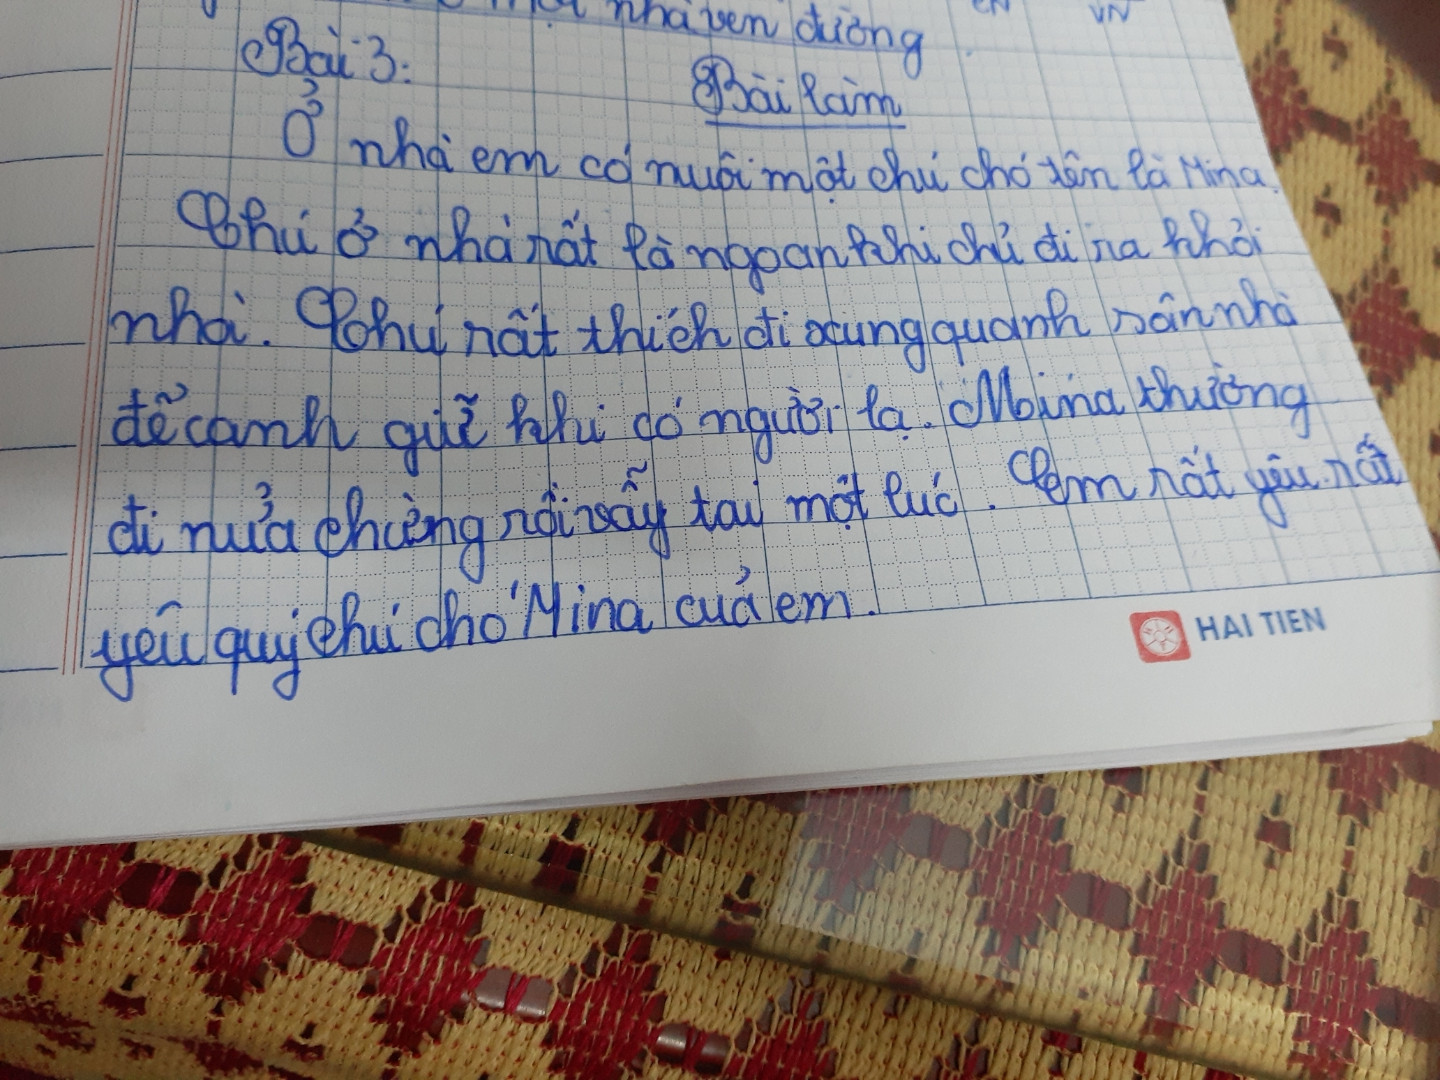 nhà ven đường
CN VN
Bài 3:
Bài làm
Ở nhà em có nuôi một chú chó tên là Mina.
Chú ở nhà rất là ngoan khi chủ đi ra khỏi
nhà. Chú rất thích đi xung quanh sân nhà
để canh giữ khi có người lạ. Mina thường
đi nửa chừng rồi vẫy tai một lúc. Em rất yêu rất
yêu quý chú chó Mina của em.
HAI TIEN